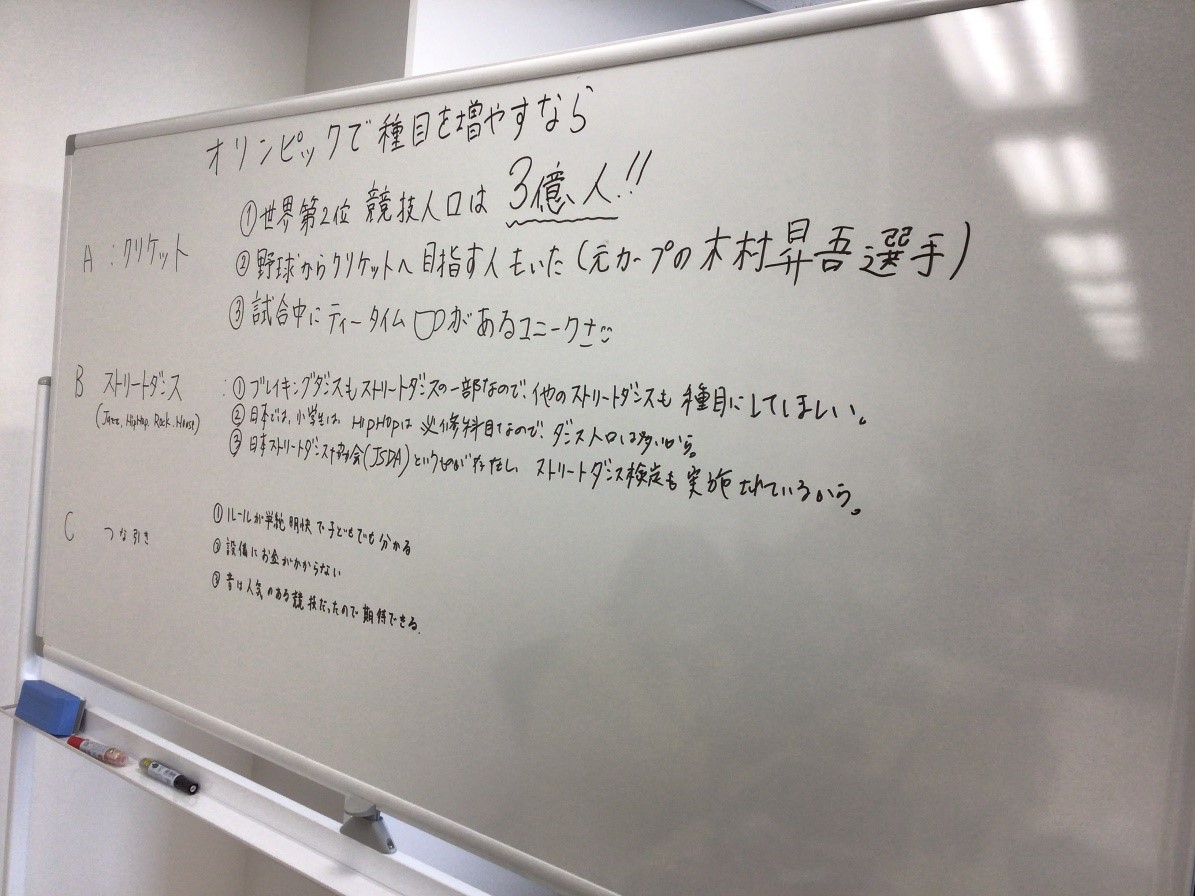 オリンピックで種目を増やすなら
A:クリケット
①世界第2位 競技人口は 3億人!!
②野球からクリケットへ 目指す人もいた(元カープの木村昇吾選手)
③試合中にティータイムがあるユニークさ
B ストリートダンス
(Jazz, HipHop, Rock, House)
:①ブレイキングダンスもストリートダンスの一部なので、他のストリートダンスも 種目にしてほしい。
②日本では、小学生は、HIPHOPは 必修科目なので、ダンス人口は多いから。
③日本ストリートダンス協会(JSDA)というものが存在し、ストリートダンス検定も 実施されているから。
C つな引き
①ルールが単純明快で子どもでも分かる
②設備にお金がかからない
③昔は人気のある競技だったので期待できる.